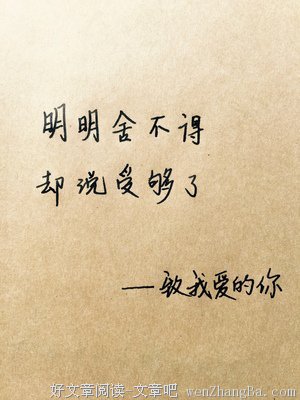 明明舍不得
却说受够了
—致我爱的你
好文章阅读-文章吧 wenZhangBa.com